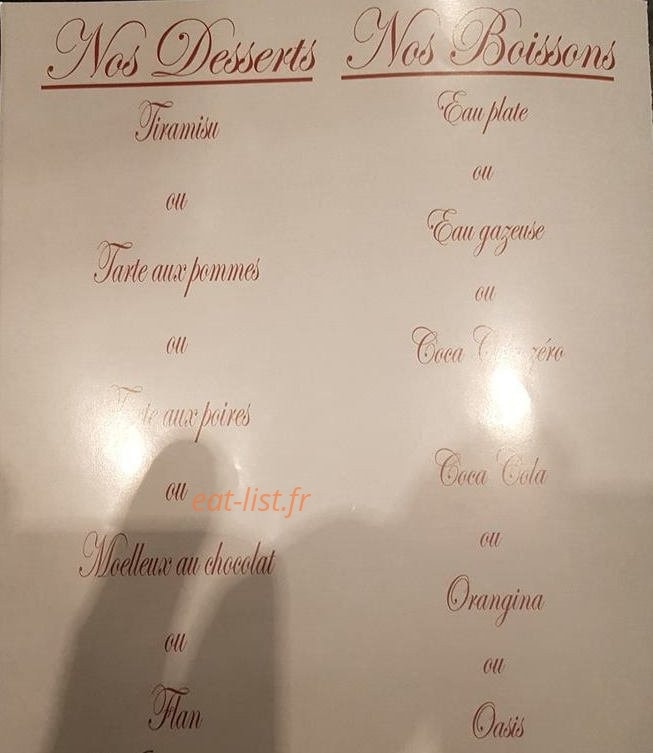 Nos Desserts
Tiramisu
ou
Tarte aux pommes
ou
aux poires
ou
Moelleux au chocolat
ou
Flan
Nos Boissons
Eau plate
ou
Eau gazeuse
ou
Coca zéro
Coca Cola
ou
Orangina
ou
Oasis
eat-list.fr